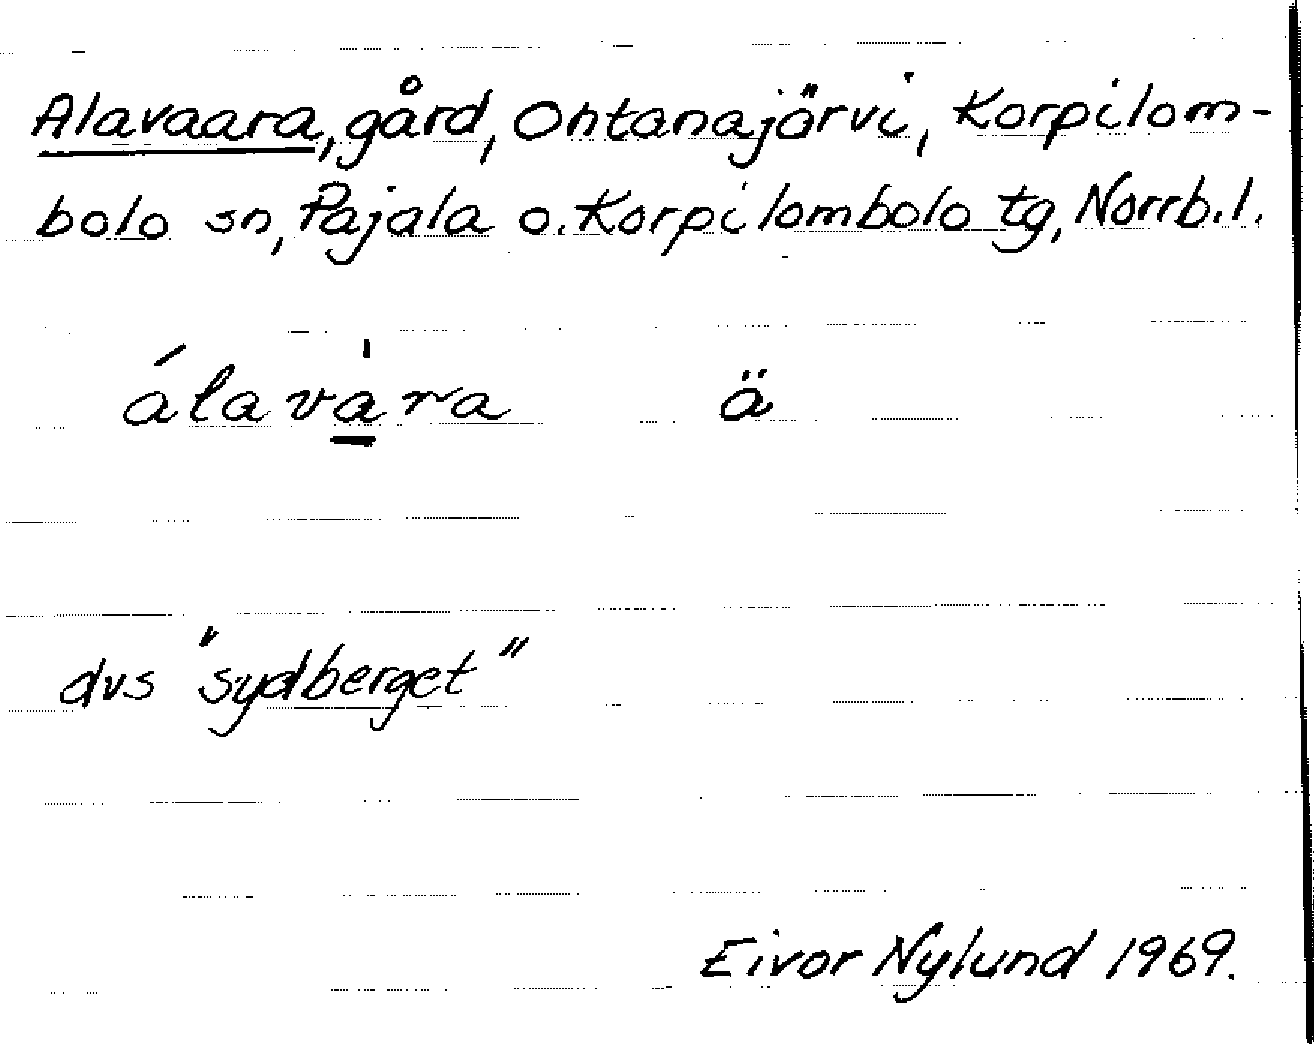 Alavaara, gård, Ohtanajärvi, Korpilom-
bolo sn, Pajala o. Korpilombolo tg, Norrb. l.
álavàra ä
dvs "sydberget"
Eivor Nylund 1969.